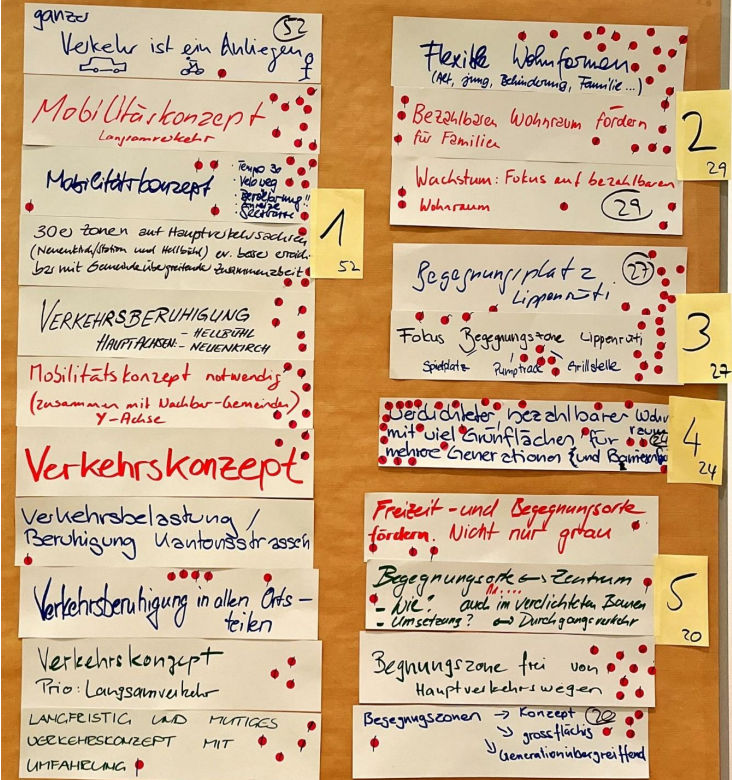 ganzer
Verkehr ist ein Anliegen
52
Mobilitäskonzept
Langsamverkehr
Mobilitätskonzept
· Tempo 30
· Veloweg
· Seestrasse
30er Zonen auf Hauptverkehrsachsen
(Neuenkirch/Station und Hellbühl) ev. besser erreich-
bar mit Gemeindeübergreifende Zusammenarbeit
VERKEHRSBERUHIGUNG
- HELLBÜHL
HAUPTACHSEN: - NEUENKIRCH
Mobilitätskonzept notwendig
(zusammen mit Nachbar-Gemeinden)
Y-Achse
Verkehrskonzept
Verkehrsbelastung/
Beruhigung Kantonsstrassen
Verkehrsberuhigung in allen Orts-
teilen
Verkehrskonzept
Prio: Langsamverkehr
LANGFRISTIG UND MUTIGES
VERKEHRSKONZEPT MIT
UMFAHRUNG
1
52
Flexible Wohnformen
(Alt, jung, Behinderung, Familie...)
Bezahlbaren Wohnraum fördern
für Familien
Wachstum: Fokus auf bezahlbaren
Wohnraum
29
2
29
Begegnungsplatz
Lippenrüti
27
Fokus Begegnungszone Lippenrüti
Spielplatz Pumptrack Grillstelle
3
27
Verdichteter, bezahlbarer Wohn
raum
mit viel Grünflächen für
24
mehrere Generationen (und Barrierefr
4
24
Freizeit- und Begegnungsorte
fördern. Nicht nur grau
Begegnungsorte <-> Zentrum
- Wie? auch in verdichteten Bauen
- Umsetzung? <-> Durchgangsverkehr
Begnungszone frei von
Hauptverkehrswegen
Begegnungszonen → Konzept
20
↘ grossflächig
↘ Generationübergreiffend
5
20